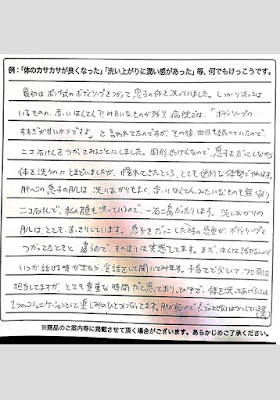 例：「体のカサカサが良くなった」「洗い上がりに潤い感があった」等、何でもけっこうです。
最初はポンプ式のボディソープをつかって息子の体を洗っていました。しっかり洗っては
いるものの、赤いはんてんみたいなものが 病院では、「ボディソープの
すすぎが甘いからですよ」と言われてたのですが、その後、何日も続いていたので、
ニコ石けんをつかってみることにしました。固形石けんなので、息子をだっこしながら
体を洗うのに とまどいましたが、慣れてきたところ、とても便利な体勢で
肝心の息子の肌は、洗い上がりもよく、赤いはんてんみたいなものも無い
ニコ石けんで、私の顔も洗っているので、一石二鳥だったりします。洗い上がりの
肌は、とても しています。息子をだっこした時の感触が、ボディソープを
つかってたときと 違うので、その辺りは実感してます。まだ、本人は話せないので
いつか話せる時が来たら、会話をして聞いてみます。子育てで
担当してますが、とても貴重な時間だと思っておりますので、体を洗ってあげることは
1つのコミュニケーションとして楽しみのひとつになってます。
※商品のご案内等に掲載させて頂く場合がございます。あらかじめご了承ください。